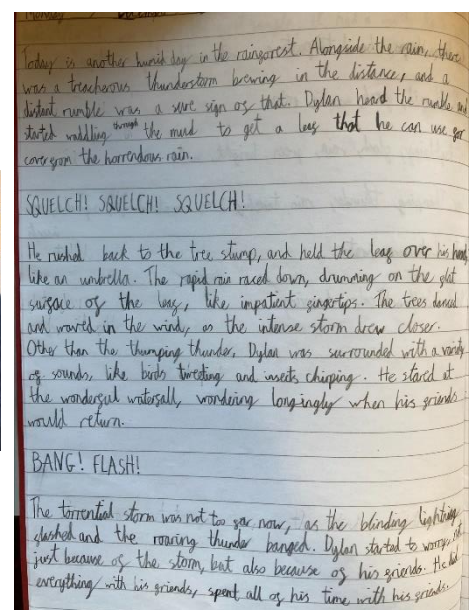 Monday / December
Today is another humid day in the rainforest. Alongside the rain, there
was a treacherous thunderstorm brewing in the distance, and a
distant rumble was a sure sign of that. Dylan heard the rumble and
started waddling through the mud to get a leaf that he can use for
cover from the horrendous rain.
SQUELCH! SQUELCH! SQUELCH!
He rushed back to the tree stump, and held the leaf over his head,
like an umbrella. The rapid rain raced down, drumming on the flat
surface of the leaf, like impatient fingertips. The trees danced
and waved in the wind, as the intense storm drew closer.
Other than the thumping thunder, Dylan was surrounded with a variety
of sounds, like birds tweeting and insects chirping. He stared at
the wonderful waterfall, wondering longingly when his friends
would return.
BANG! FLASH!
The torrential storm was not too far now, as the blinding lightning
flashed and the roaring thunder banged. Dylan started to worry, not
just because of the storm, but also because of his friends. He did
everything with his friends, spent all of his time with his friends.